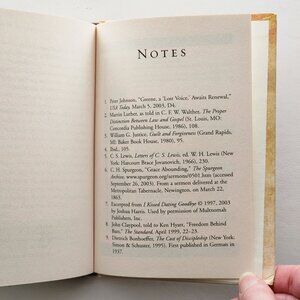 NOTES
1. Peter Johnson, "Greene, a 'Lost Voice,' Awaits Renewal,"
USA Today, March 5, 2003, D4.
2. Martin Luther, as told in C. F. W. Walther, The Proper
Distinction Between Law and Gospel (St. Louis, MO:
Concordia Publishing House, 1986), 108.
3. William G. Justice, Guilt and Forgiveness (Grand Rapids,
MI: Baker Book House, 1980), 95.
4. Ibid., 105.
5. C. S. Lewis, Letters of C. S. Lewis, ed. W. H. Lewis (New
York: Harcourt Brace Jovanovich, 1966), 230.
6. C. H. Spurgeon, "Grace Abounding," The Spurgeon
Archive, www.spurgeon.org/sermons/0501.htm (accessed
September 26, 2003). From a sermon delivered at the
Metropolitan Tabernacle, Newington, on March 22,
1863.
7. Excerpted from I Kissed Dating Goodbye © 1997, 2003
by Joshua Harris. Used by permission of Multnomah
Publishers, Inc.
8. John Claypool, told to Ken Hyatt, "Freedom Behind
Bars," The Standard, April 1999, 22–23.
9. Dietrich Bonhoeffer, The Cost of Discipleship (New York:
Simon & Schuster, 1995). First published in German in
1937.